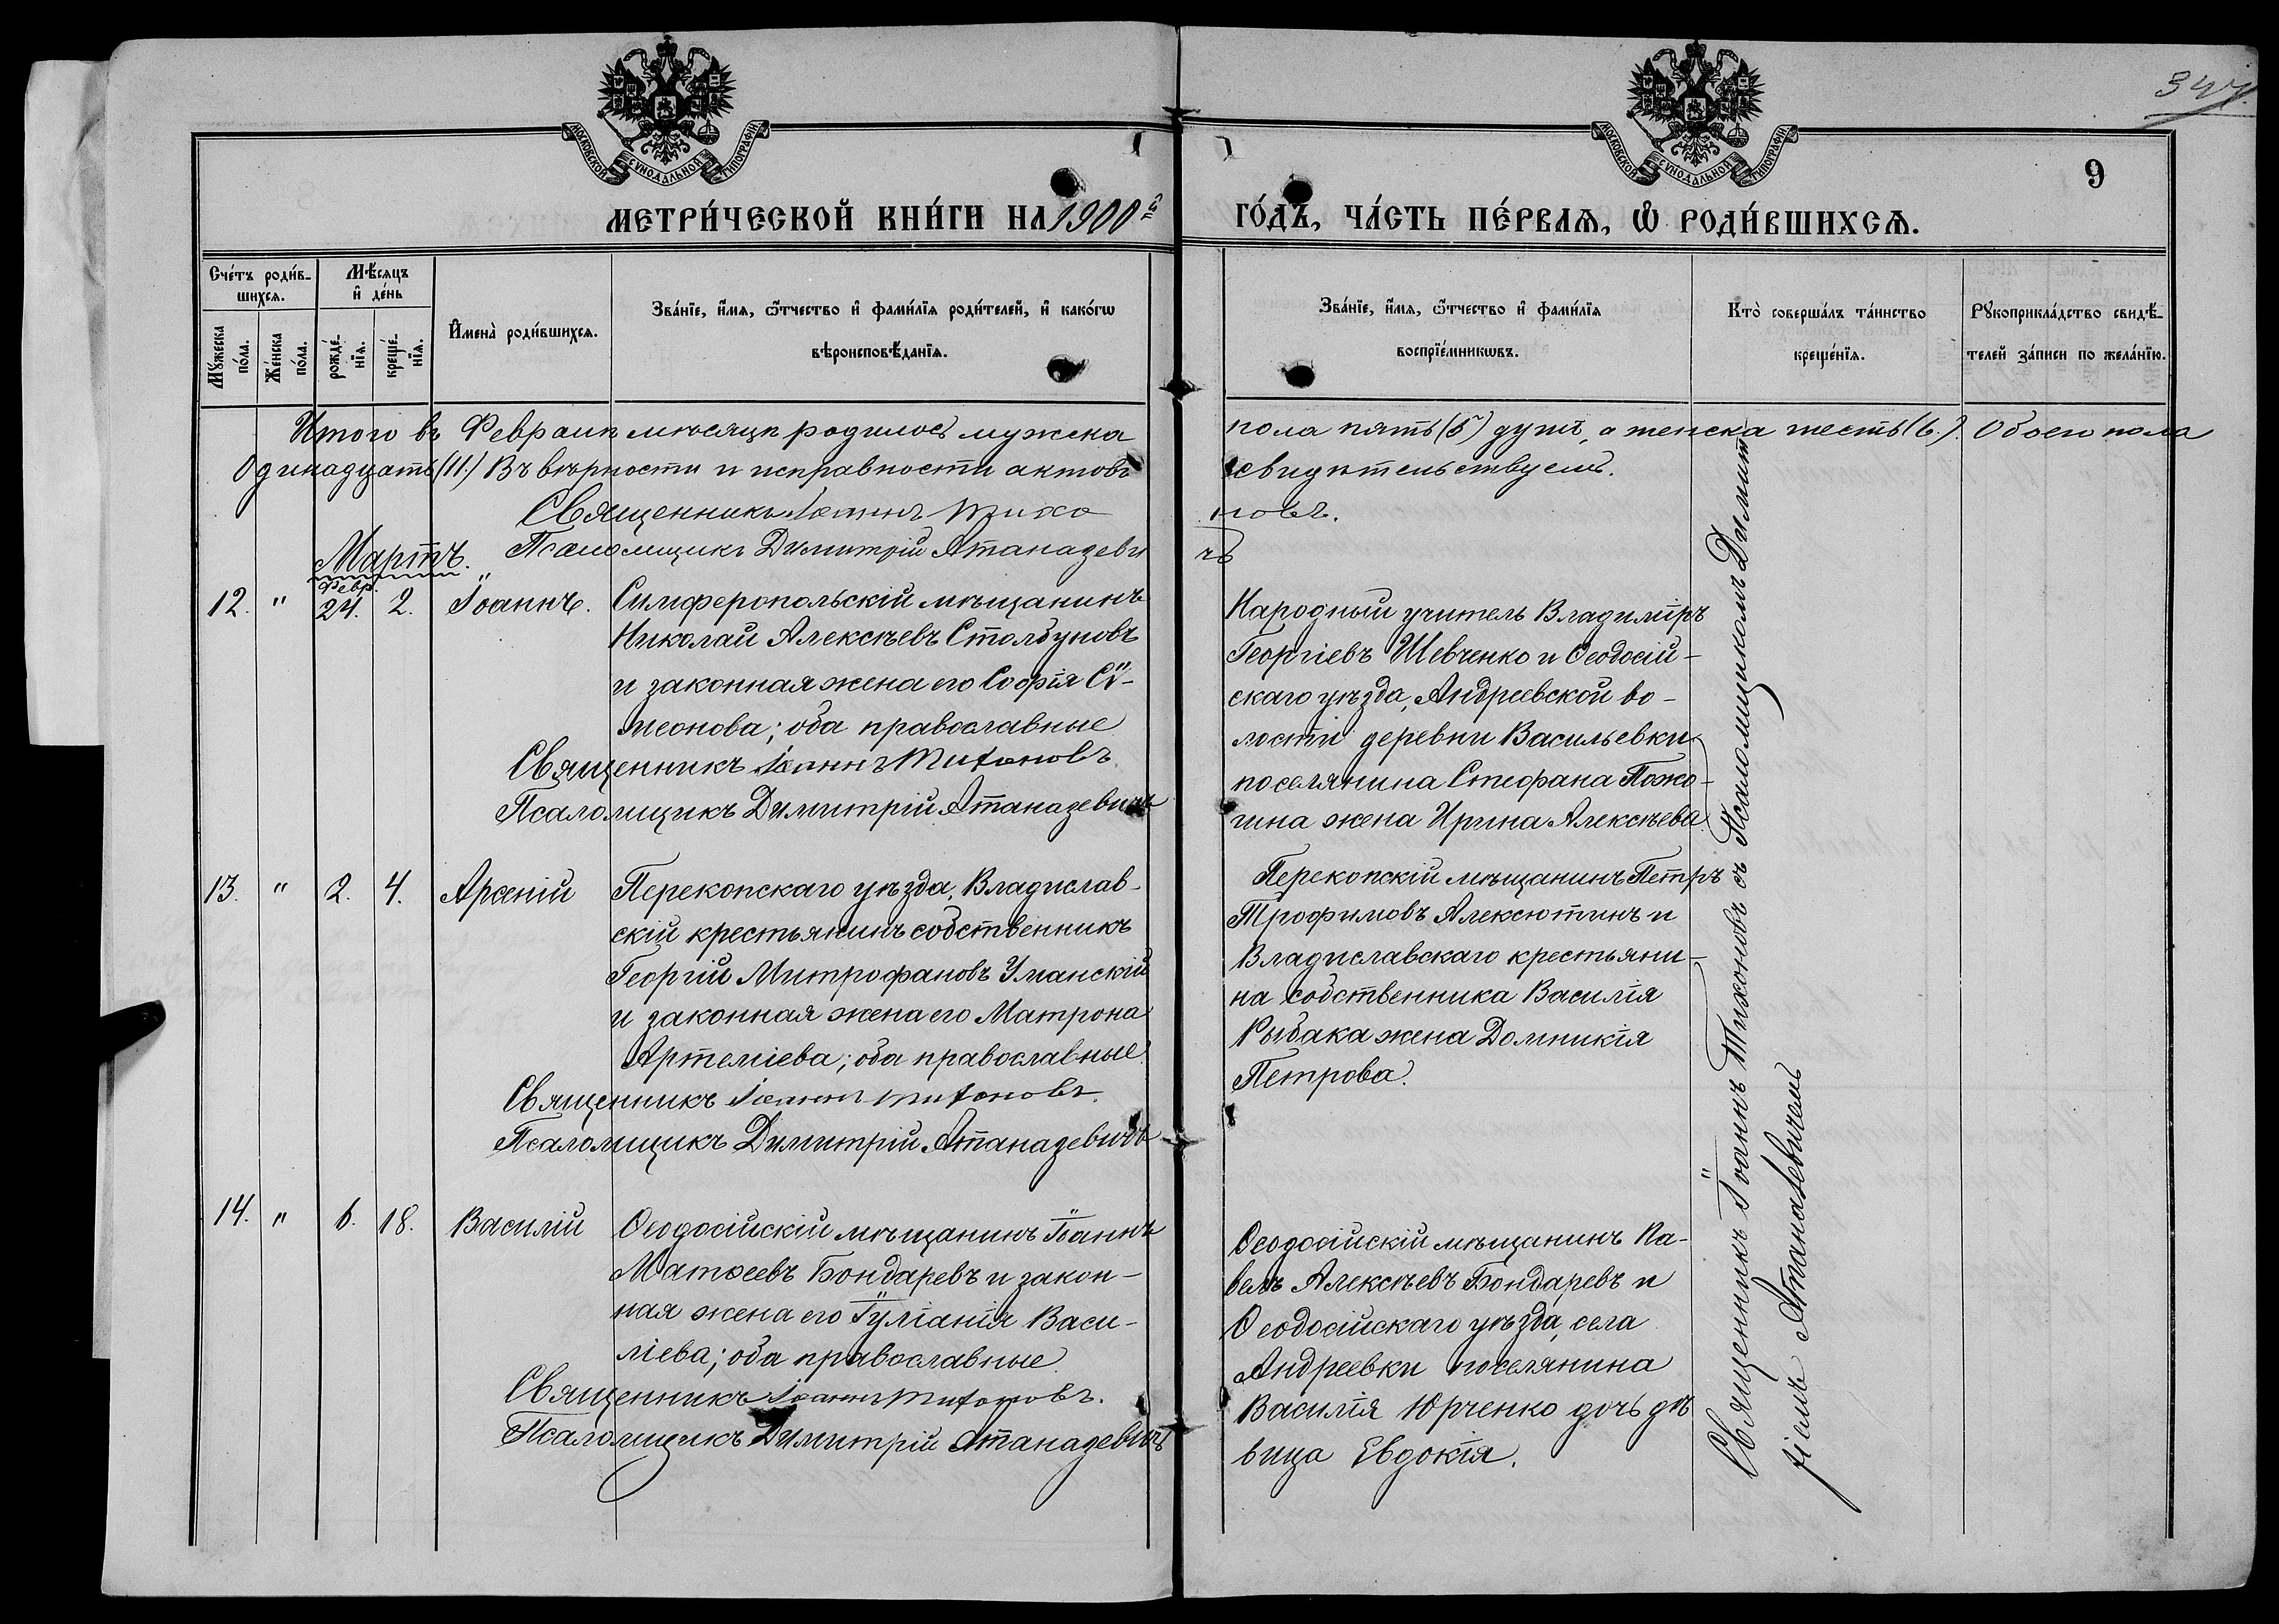 347.
МОСКОВСКОЙ СѴНОДАЛЬНОЙ ТИПОГРАФІИ
МОСКОВСКОЙ СѴНОДАЛЬНОЙ ТИПОГРАФІИ
9
МЕТРИ́ЧЕСКОЙ КНИ́ГИ НА 1900й ГО́ДЪ, ЧА́СТЬ ПЕ́РВАѦ, Ѡ҆ РОДИ́ВШИХСѦ.
Сче́тъ роди́в-
шихсѧ.
Мꙋ́жеска
по́ла.
Же́нска
по́ла.
Мѣ́сѧцъ
и҆ де́нь
рожде́-
нїѧ.
креще́-
нїѧ.
И҆мена̀ роди́вшихсѧ.
Зва́нїе, и҆́мѧ, ѻ҆́тчество и҆ фами́лїѧ роди́телей, и҆ како́гѡ
вѣроисповѣ́данїѧ.
Зва́нїе, и҆́мѧ, ѻ҆́тчество и҆ фами́лїѧ
воспрїе́мникѡвъ.
Кто̀ соверша́лъ та́инство
креще́нїѧ.
Рꙋкоприкла́дство свидѣ́-
телей за́писи по жела́нїю.
Итого въ Февралѣ мѣсяцѣ родилось мужска пола пять (5) душъ, а женска шесть (6.). Обоего пола
одинадцать (11.) Въ вѣрности и исправности актовъ свидѣтельствуемъ.
Священникъ Іоаннъ Тихоновъ.
Псаломщикъ Димитрій Атаназевичъ
Мартъ.
12. " Февр. 24. 2. Іоаннъ.
Симферопольскій мѣщанинъ
Николай Алексѣевъ Столбуновъ
и законная жена его Софія Сѵ-
меонова; оба православные
Священникъ Іоаннъ Тихоновъ
Псаломщикъ Димитрій Атаназевичъ
Народный учитель Владиміръ
Георгіевъ Шевченко и Ѳеодосій-
скаго уѣзда, Андреевской во-
лости деревни Васильевки
поселянина Стефана Пожо-
гина жена Ирина Алексѣева.
13. " 2. 4. Арсеній
Перекопскаго уѣзда, Владислав-
скій крестьянинъ собственникъ
Георгій Митрофановъ Уманскій
и законная жена его Матрона
Артеміева; оба православные
Священникъ Іоаннъ Тихоновъ.
Псаломщикъ Димитрій Атаназевичъ
Перекопскій мѣщанинъ Петръ
Трофимовъ Алексютинъ и
Владиславскаго крестьяни-
на собственника Василія
Рыбака жена Домникія
Петрова.
14. " 6. 18. Василій
Ѳеодосійскій мѣщанинъ Іоаннъ
Матѳеевъ Бондаревъ и закон-
ная жена его Іуліанія Васи-
ліева; оба православные
Священникъ Іоаннъ Тихоновъ.
Псаломщикъ Димитрій Атаназевичъ
Ѳеодосійскій мѣщанинъ Па-
велъ Алексѣевъ Бондаревъ и
Ѳеодосійскаго уѣзда, села
Андреевки поселянина
Василія Юрченко дочь дѣ
вица Евдокія.
Священникъ Іоаннъ Тихоновъ съ Псаломщикомъ Димит
ріемъ Атаназевичемъ